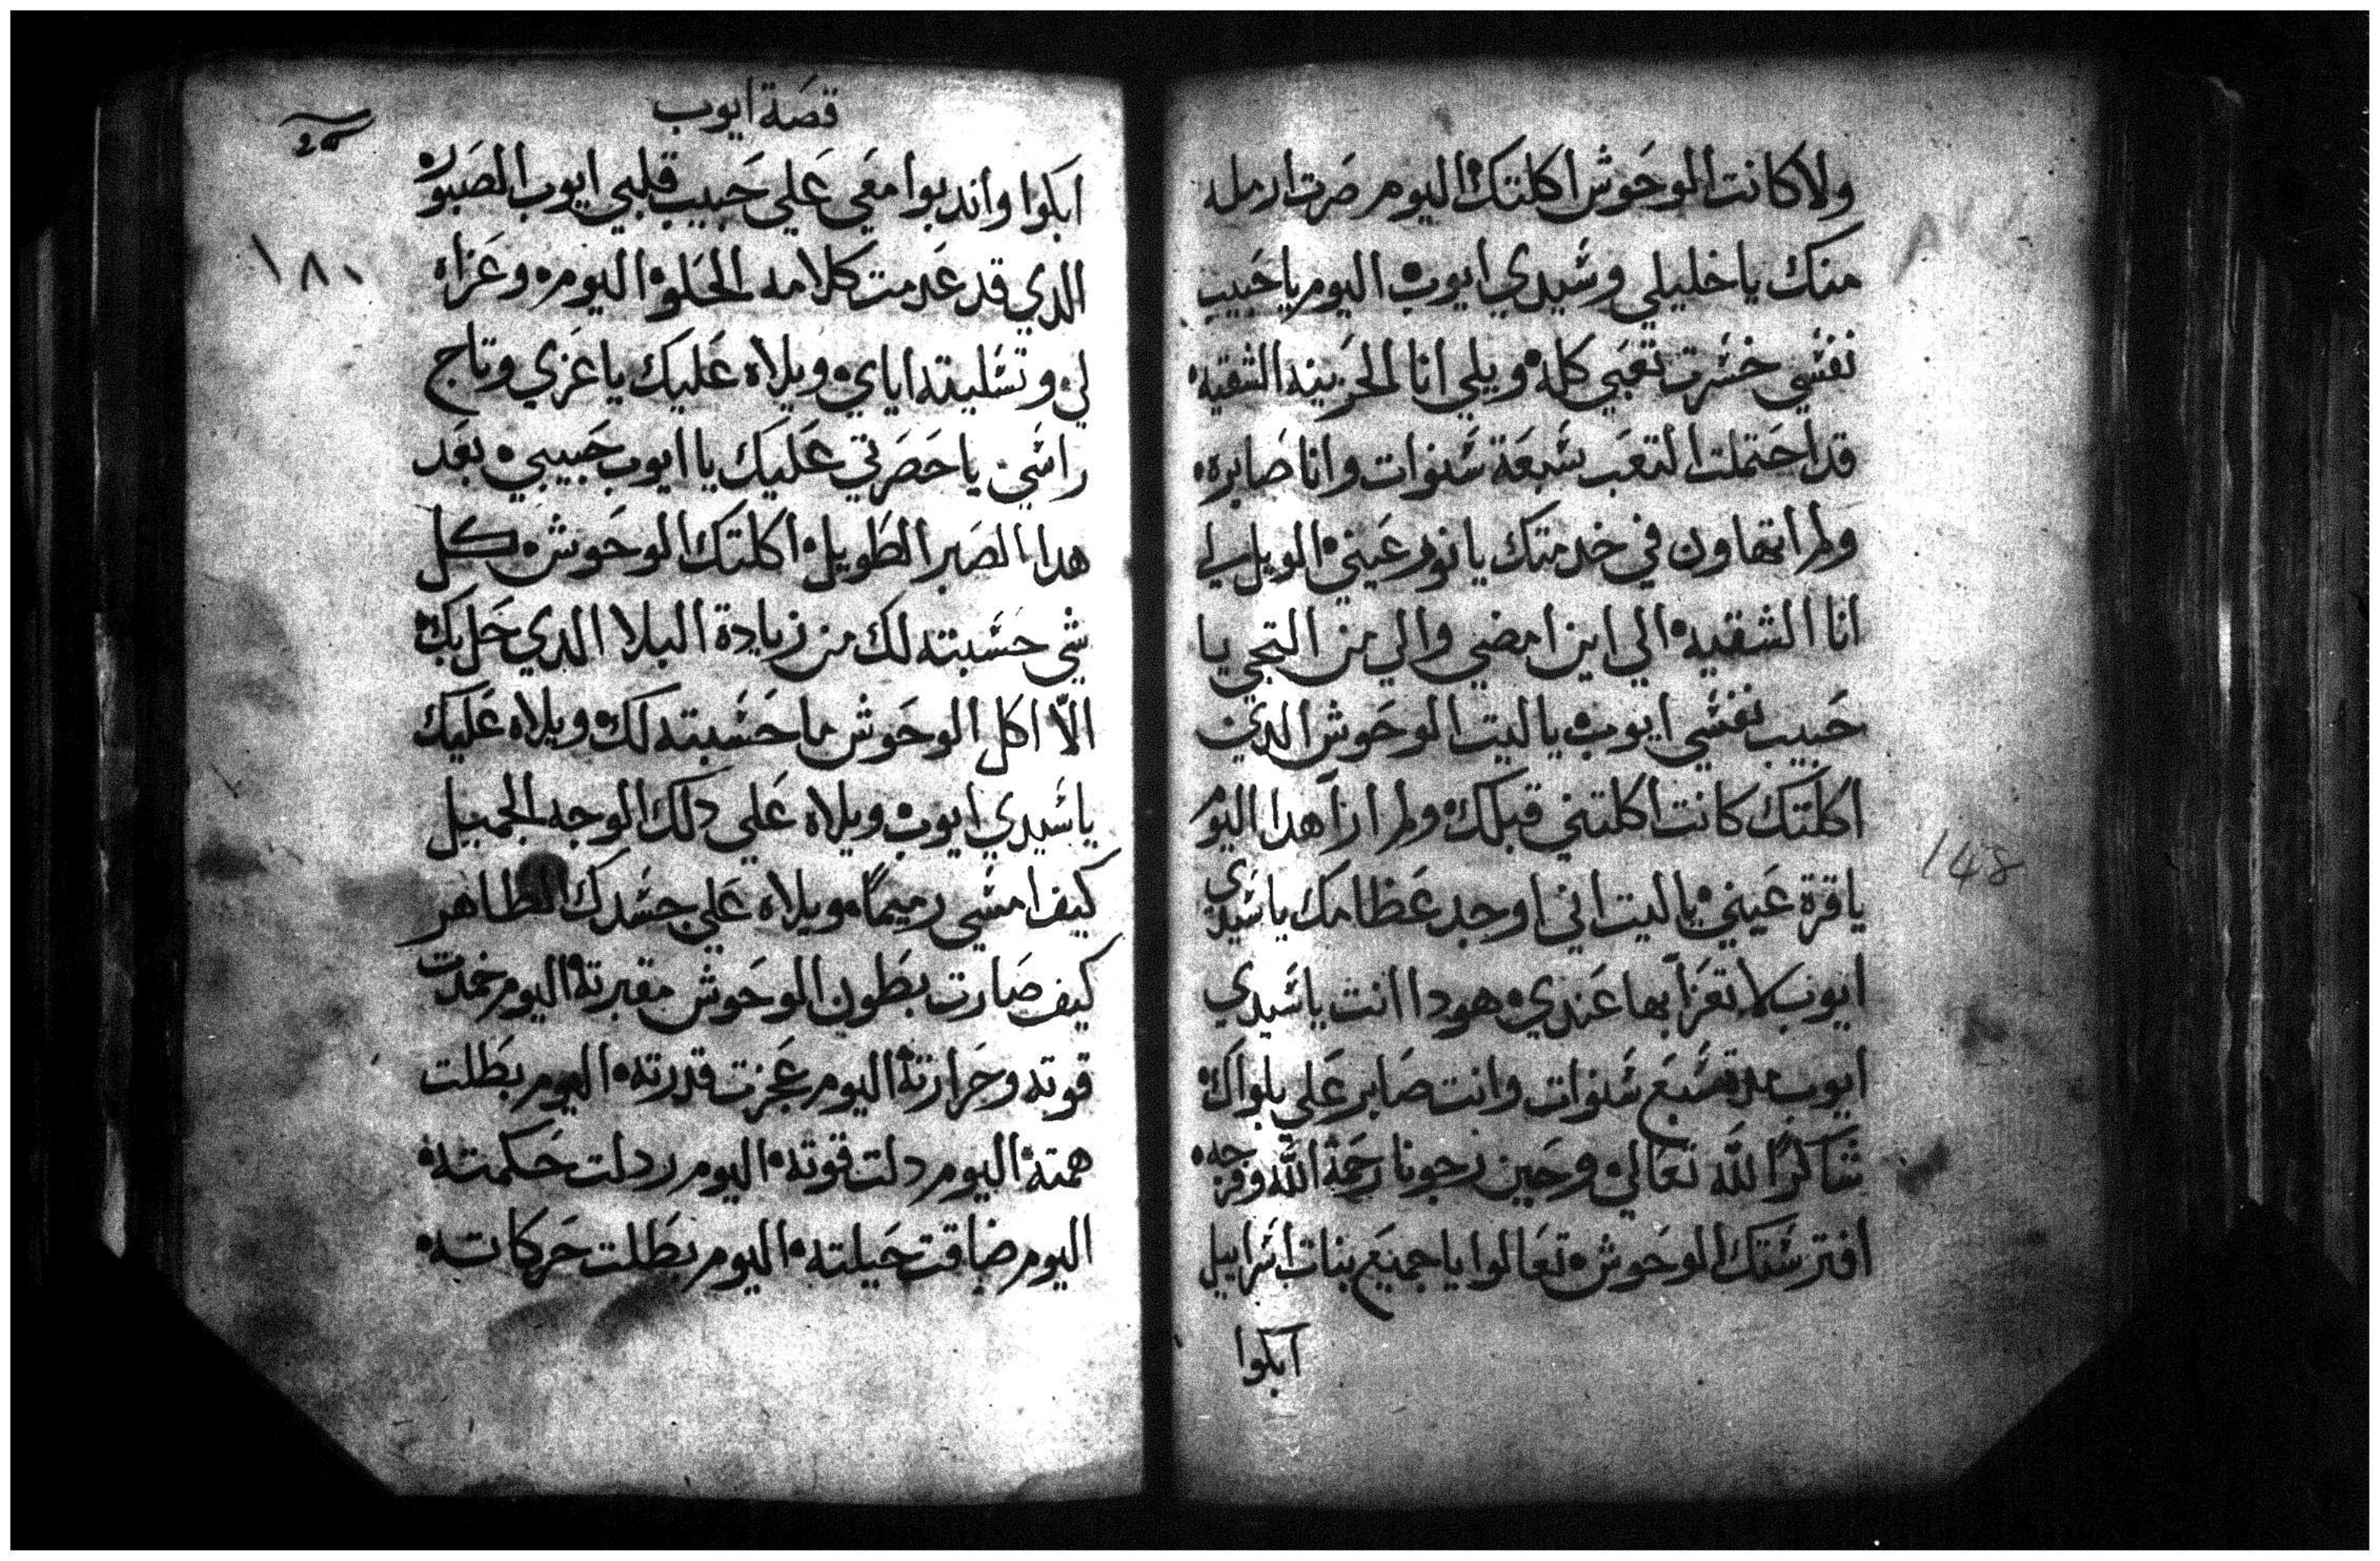 ولا كانت الوحوش اكلتك اليوم صرت ارمله
منك يا خليلي وسيدي ايوب اليوم يا حبيب
نفسي خسرت تعبي كله ويلي انا الحزينه الشقيه
قد احتملت التعب سبعة سنوات وانا صابره
ولم اتهاون في خدمتك يا نور عيني الويل لي
انا الشقيه الي اين امضي والي من التجي يا
حبيب نفسي ايوب يا ليت الوحوش الدي
اكلتك كانت اكلتني قبلك ولم ارا هدا اليوم
يا قرة عيني يا ليت اني اوجد عظامك يا سيدي
ايوب لاتعزا بها عندي هودا انت يا سيدي
ايوب مدة سبع سنوات وانت صابر علي بلواك
شاكرا لله تعالي وحين رجونا رحمة الله وفرجه
افترستك الوحوش تعالوا يا جميع بنات اسراييل
ابكوا
قصة ايوب
ابكوا واندبوا معي علي حبيب قلبي ايوب الصبور
١٨٠
الدي قد عدمت كلامه الحلو اليوم وعزاه
لي وتسليته اياي ويلاه عليك يا عزي وتاج
راسي يا حصرتي عليك يا ايوب حبيبي بعد
هدا الصبر الطويل اكلتك الوحوش كل
شي حسبته لك من زيادة البلا الدي حل بك
الا اكل الوحوش ما حسبته لك ويلاه عليك
يا سيدي ايوب ويلاه علي دلك الوجه الجميل
كيف امسي رميمًا ويلاه علي جسدك الطاهر
كيف صارت بطون الوحوش مقبرته اليوم خمدت
قوته وحرارته اليوم عجزت قدرته اليوم بطلت
همته اليوم دلت قوته اليوم ردلت حكمته
اليوم ضاقت حيلته اليوم بطلت حركاته
148